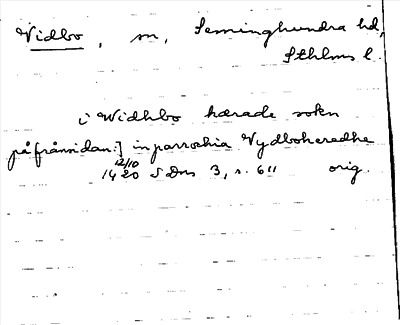 Vidbo, sn, Seminghundra hd,
Sthlms l.
i Widhbo hærade sokn
på frånsidan:] in parrochia Vydboheredhe
12/10
1420 SDns 3, s. 611 orig.